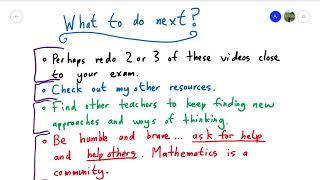 What to do next?
• Perhaps redo 2 or 3 of these videos close
to your exam.
• Check out my other resources.
• Find other teachers to keep finding new
approaches and ways of thinking.
• Be humble and brave... ask for help
and help others. Mathematics is a
community.